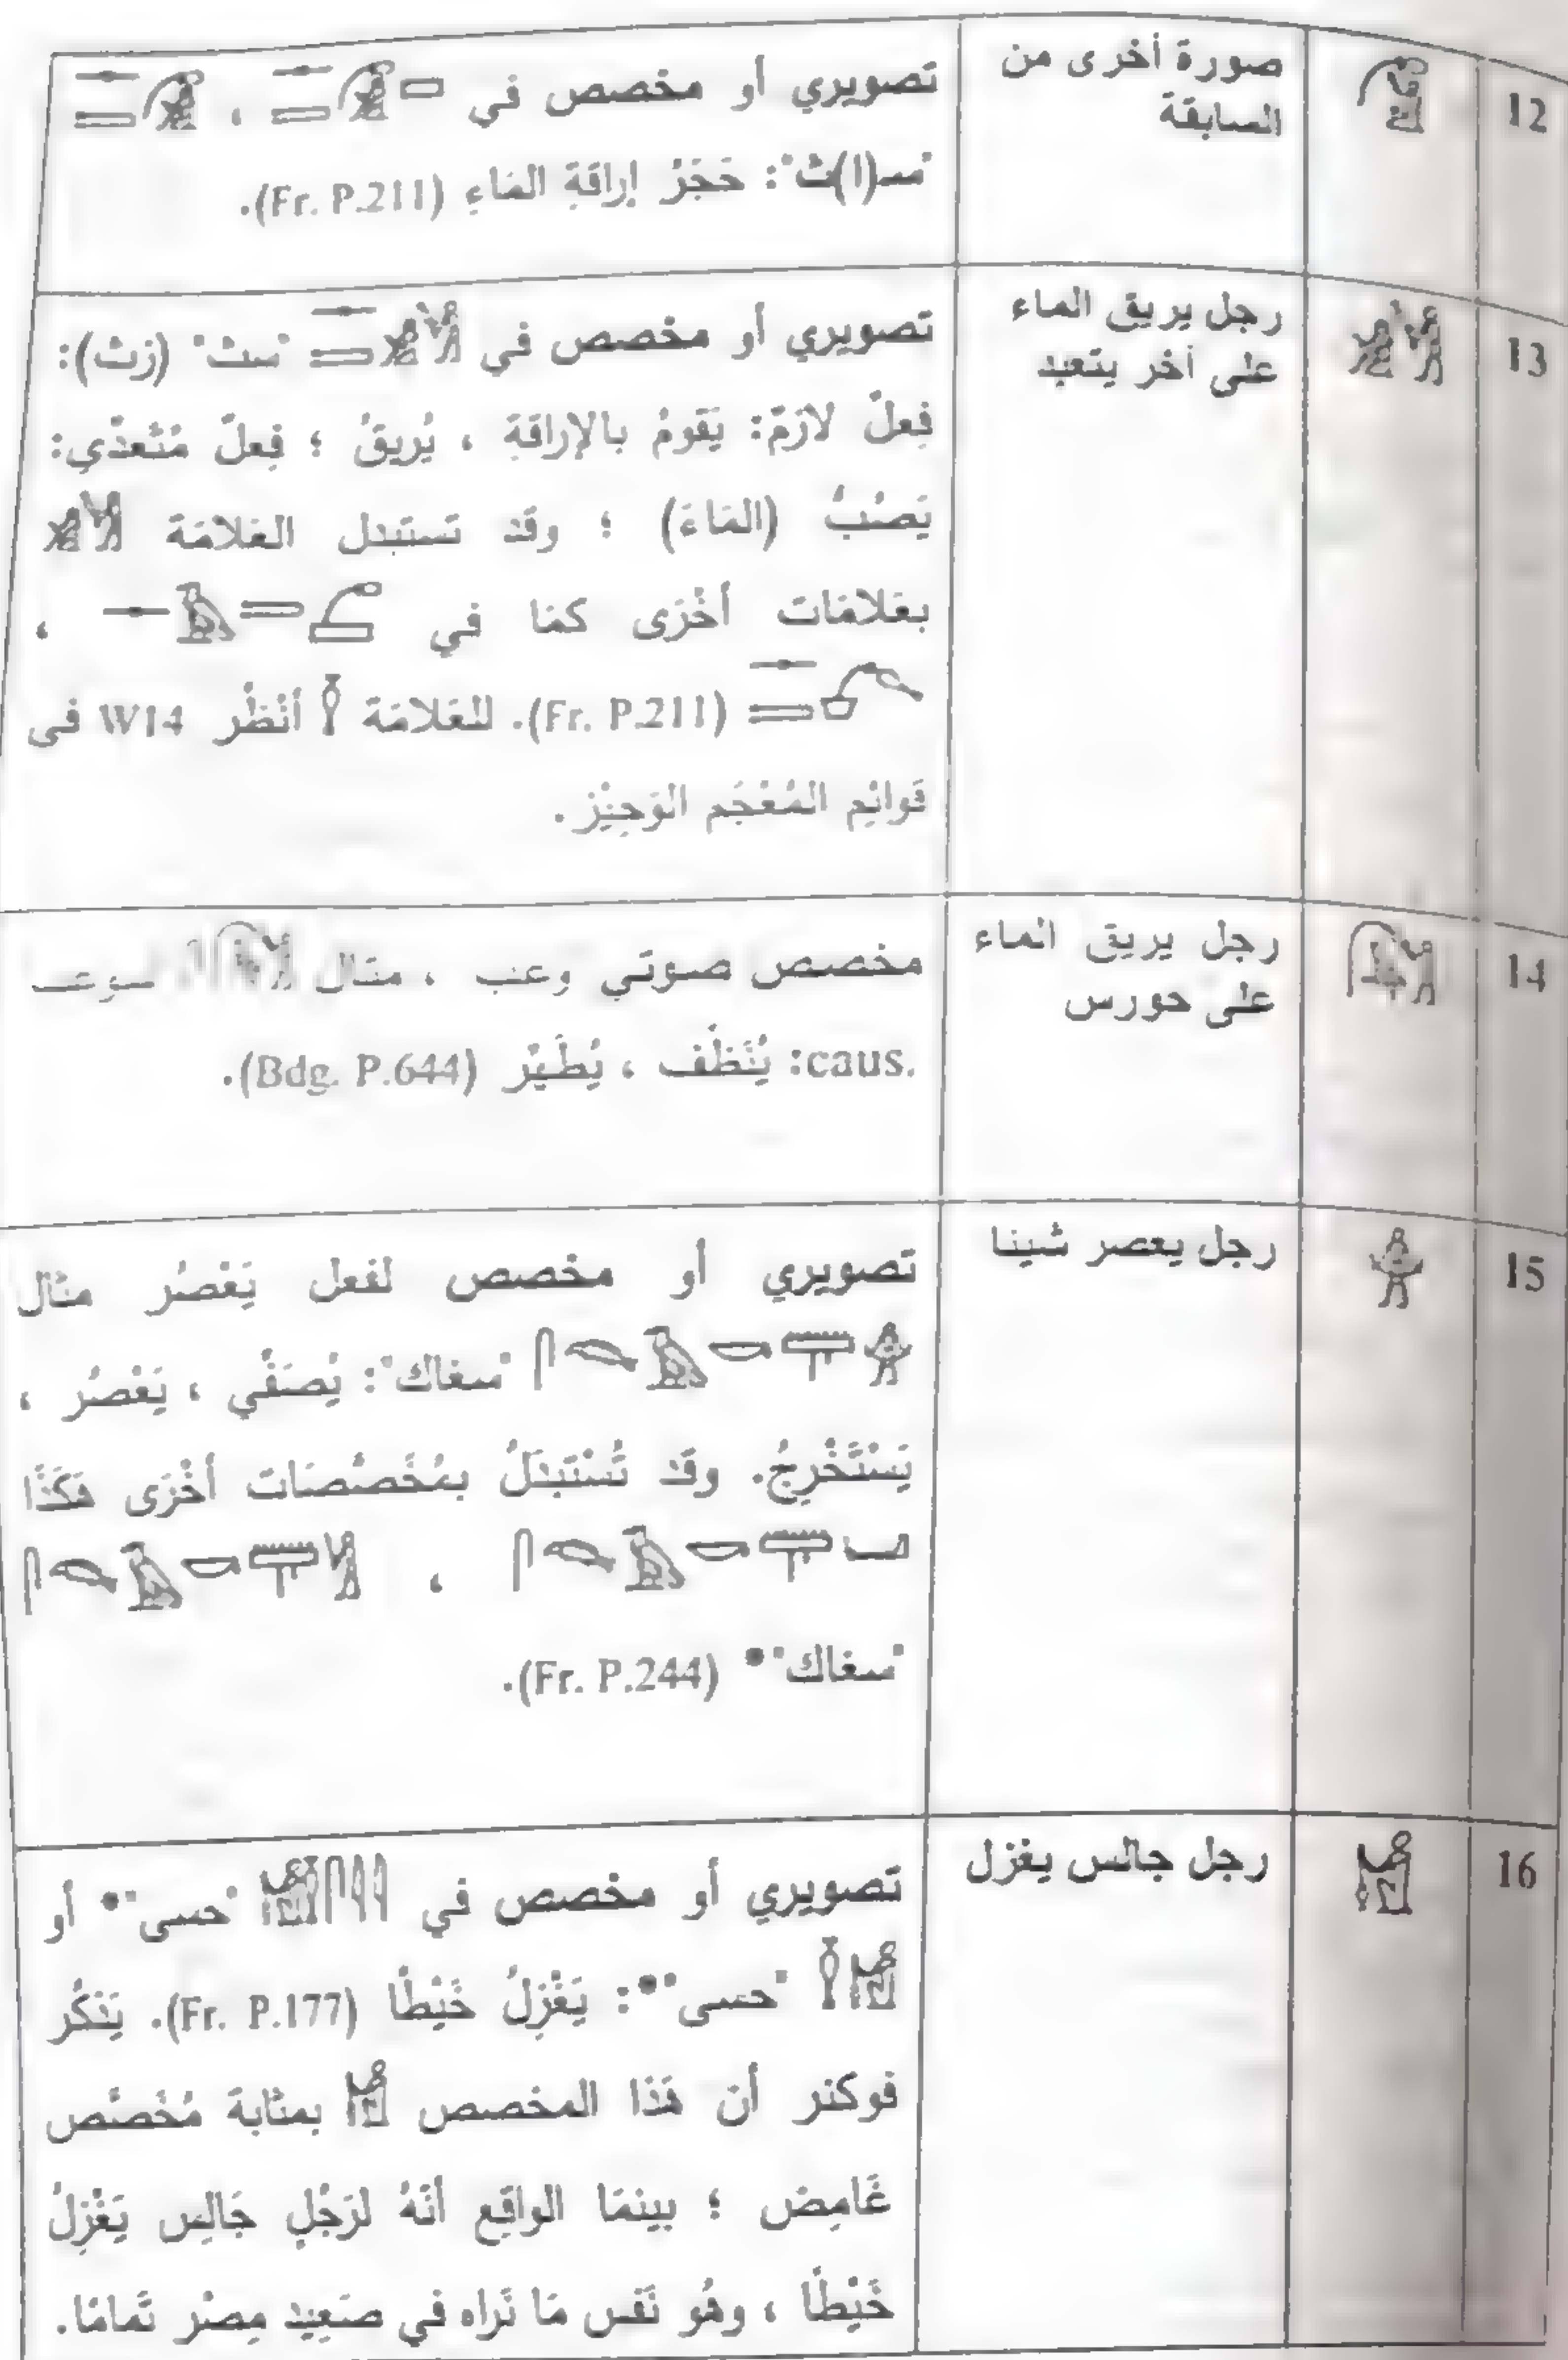 12
صورة أخرى من
السابقة
تصويري أو مخصص في ، 
"سـ(ا)ث": حَجَرُ إراقَةِ المَاءِ (Fr. P.211).
13
رجل يريق الماء
على أخر يتعبد
تصويري أو مخصص في "سث" (زث):
فِعلٌ لازمٌ: يَقومُ بالإراقَةِ ، يُريقُ ؛ فِعلٌ مُتعدّي:
يَصُبُّ (المَاءَ) ؛ وقَد تستبدل العَلامَة
بعَلامَات أخْرَى كمَا في ،
(Fr. P.211). للعَلامَة أنْظُر W14 فى
قَوائِم المُعْجَم الوَجِيْز.
14
رجل يريق الماء
على حورس
مخصص صوتي وعب ، مثال سوعب
caus.: يُنَظِّف ، يُطَهِّر (Bdg. P.644).
15
رجل يعصر شينا
تصويري أو مخصص لفعل يَعْصُر مثال
"سغاك": يُصَفِّي ، يَعْصُر ،
يَسْتَخْرِجُ. وقَد تُسْتَبدَلُ بمُخَصِّصَات أخْرَى هَكَذَا
،
"سغاك"* (Fr. P.244).
16
رجل جالس يغزل
تصويري أو مخصص في "حسى"* أو
"حسى"*: يَغْزِلُ خَيْطًا (Fr. P.177). يَذكُر
فوكنر أن هَذا المخصص بمثابة مُخَصِّص
غَامِض ؛ بينمَا الواقِع أنَهُ لرَجُلٍ جَالِس يَغْزِلُ
خَيْطًا ، وهُو نَفس مَا نَراه في صَعِيد مِصْر تَمامًا.